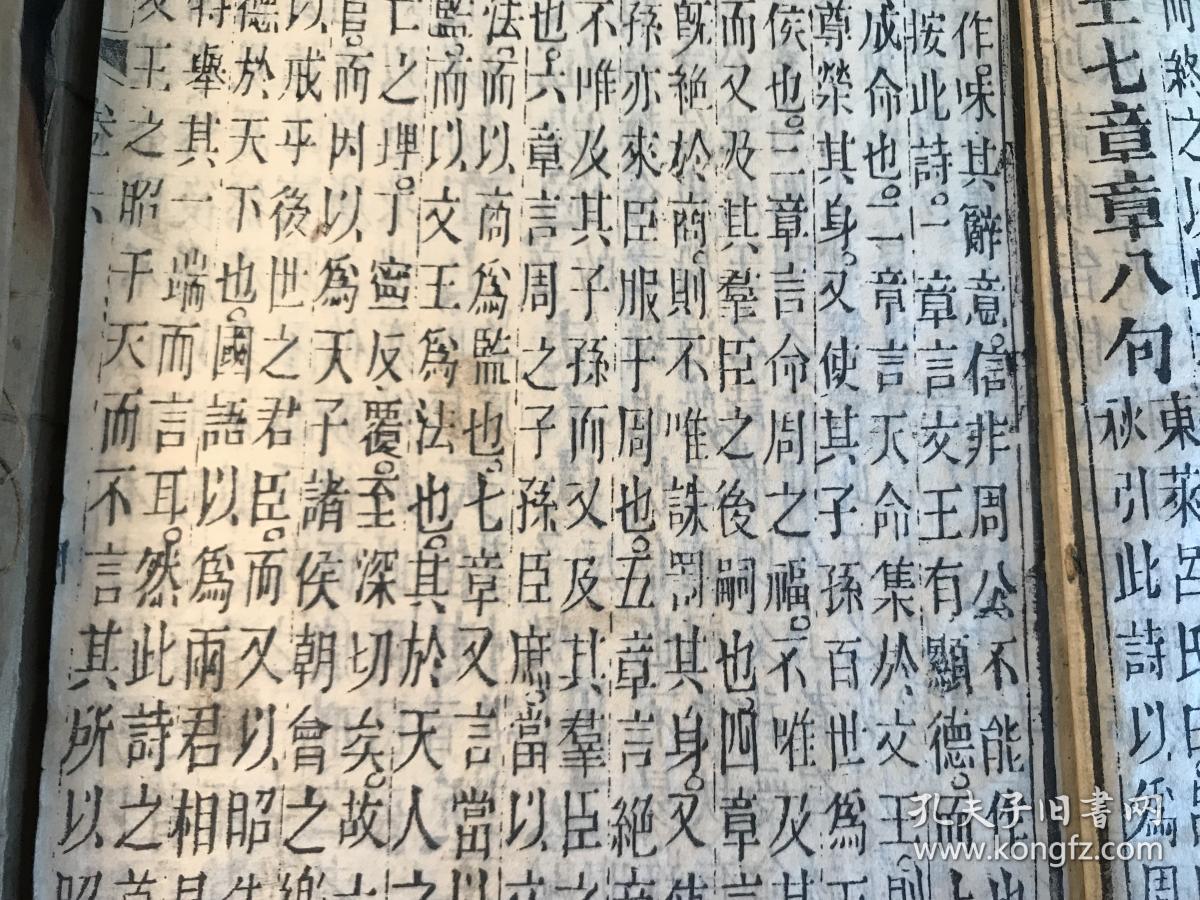 而終之以
王七章章八句
東萊呂氏曰
秋引此詩以為周
作。味其辭意。信非周公不能作也
按此詩。一章言文王有顯德。而上
成命也。二章言天命集於文王。則
尊榮其身。又使其子孫百世為天
侯也。三章言命周之福。不唯及其
而又及其羣臣之後嗣也。四章言
既絕於商。則不唯誅罰其身。又使
孫亦來臣服于周也。五章言絕商
不唯及其子孫而又及其羣臣之
也。六章言周之子孫臣庶。當以文
法。而以商為監也。七章又言當以
監。而以文王為法也。其於天人之
亡之理。丁寧反覆。至深切矣。故大
官。而因以為天子諸侯朝會之樂
以戒乎後世之君臣。而又以昭先
德於天下也。國語以為兩君相見
特舉其一端而言耳。然此詩之首
文王之昭于天而不言其所以昭
卷六
孔夫子旧书网
www.kongfz.com